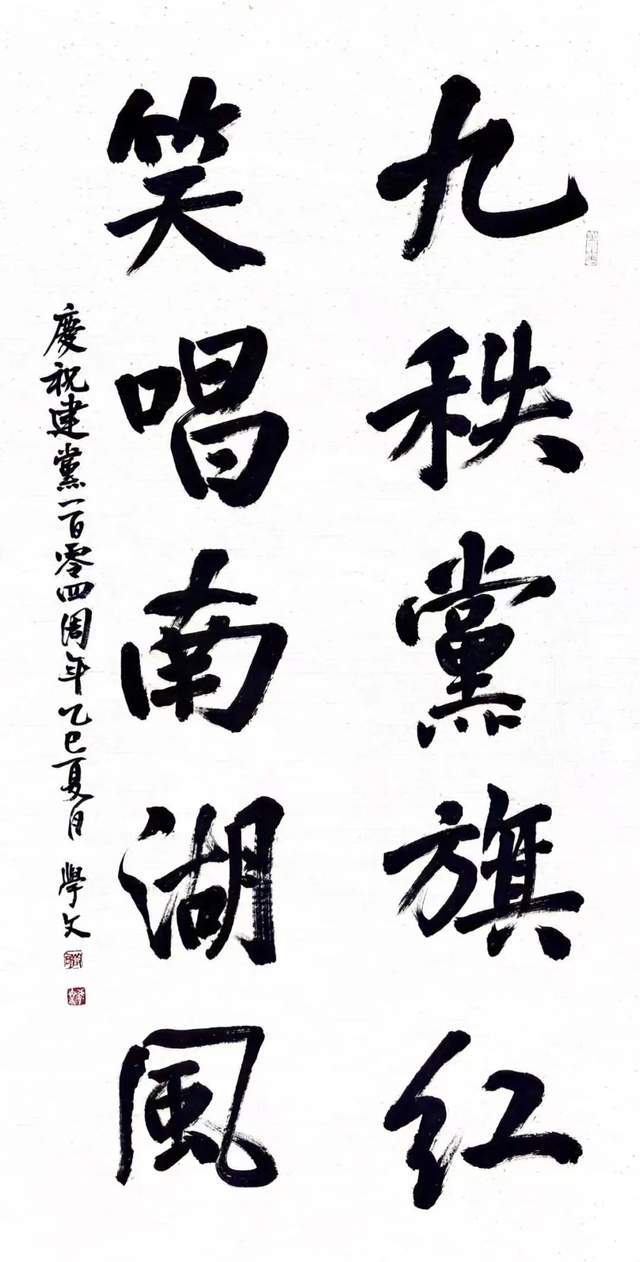 九秩黨旗红
笑唱南湖風
慶祝建黨一百零四周年乙巳夏月 學文